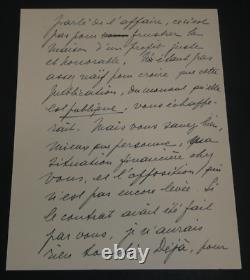 parlé de l'affaire, ce n'est
pas pour frustrer la
maison d'un profit juste
et honorable, N'étant pas
assez naïf pour croire que cette
publication, du moment qu'elle
est publique, vous échappe-
rait. Mais vous savez bien,
mieux que personne, ma
situation financière chez
vous, et l'opposition qui
n'est pas encore levée. Si
le contrat avait été fait
par vous, je n'aurais
rien touché. Déjà, pour